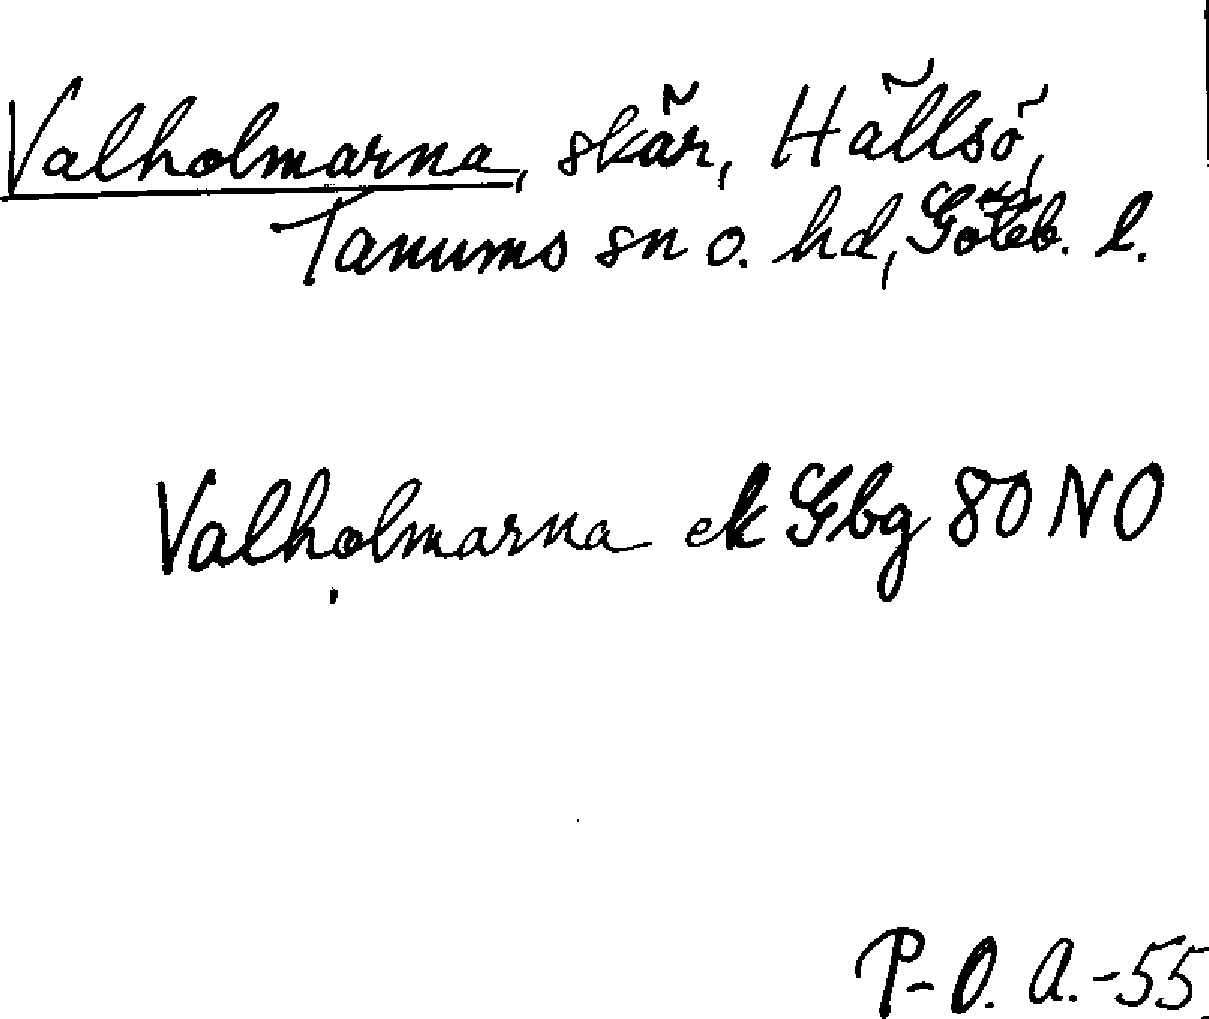 Valholmarna, skär, Hällsö,
Tanums sn o. hd, Göteb. l.
Valholmarna ek Gbg 80 NO
P-O. A.-55.